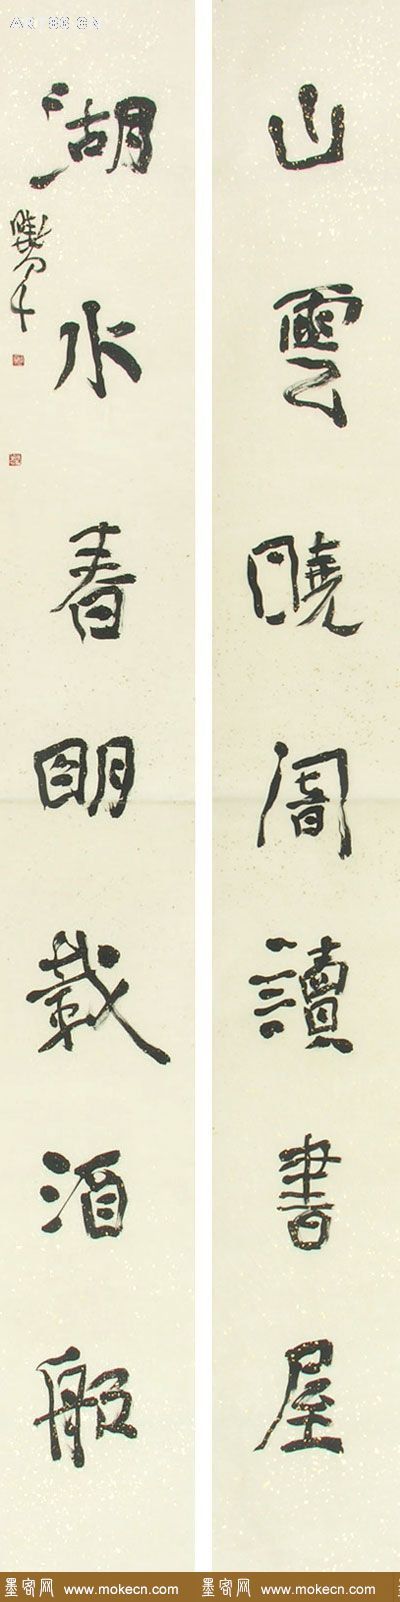 山雲曉闇讀書屋
湖水春明載酒船
墨客网 www.mokecn.com 墨客网 www.mokecn.com